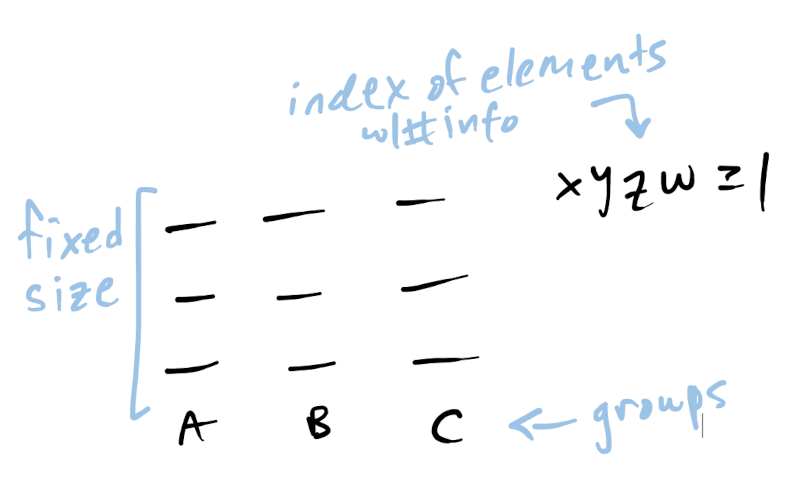 index of elements
w/# info
xyzw = 1
fixed
size
A B C ← groups